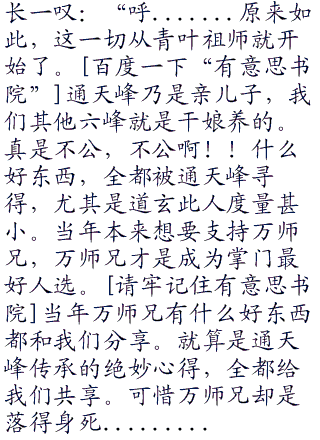 长一叹：“呼.......原来如
此，这一切从青叶祖师就开
始了。[百度一下“有意思书
院”]通天峰乃是亲儿子，我
们其他六峰就是干娘养的。
真是不公，不公啊！！什么
好东西，全都被通天峰寻
得，尤其是道玄此人度量甚
小。当年本来想要支持万师
兄，万师兄才是成为掌门最
好人选。[请牢记住有意思书
院]当年万师兄有什么好东西
都和我们分享。就算是通天
峰传承的绝妙心得，全都给
我们共享。可惜万师兄却是
落得身死.........